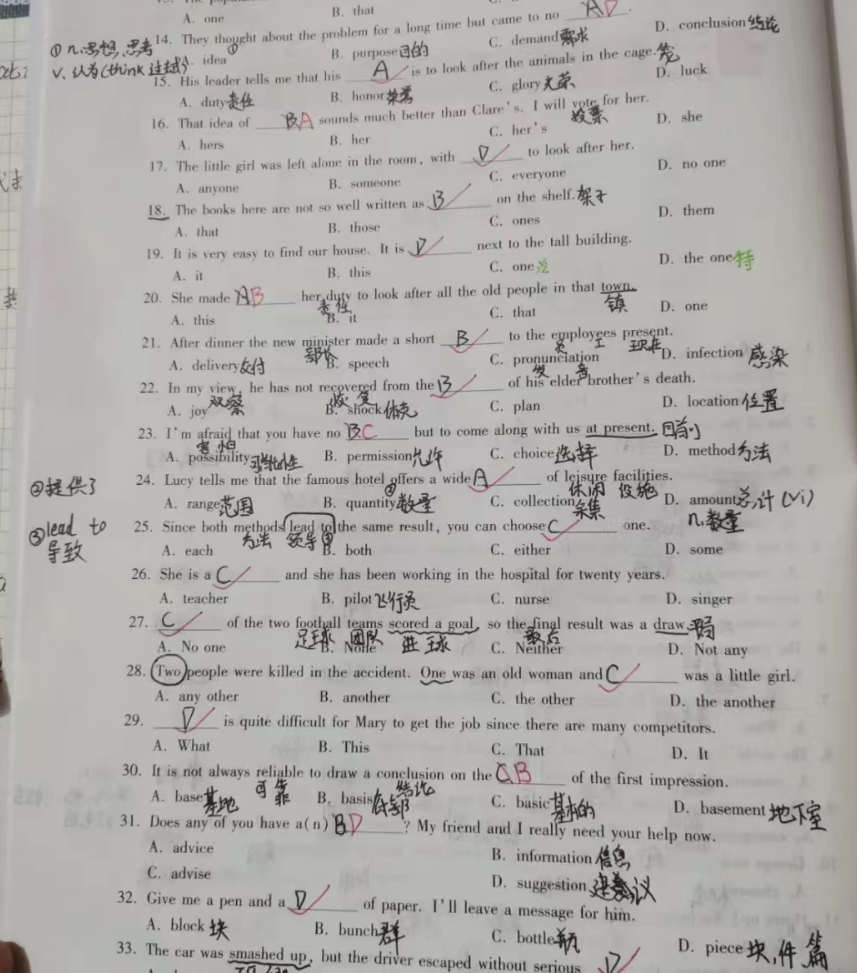 A. one B. that
14. They thought about the problem for a long time but came to no AD.
① n.思想,思考
V. 认为(think过去式)
idea① B. purpose目的 C. demand需求 D. conclusion结论
15. His leader tells me that his A is to look after the animals in the cage.笼
A. duty责任 B. honor荣誉 C. glory光荣 D. luck
16. That idea of BA sounds much better than Clare's. I will vote for her.
投票
A. hers B. her C. her's D. she
17. The little girl was left alone in the room, with D to look after her.
A. anyone B. someone C. everyone D. no one
18. The books here are not so well written as B on the shelf.架子
A. that B. those C. ones D. them
19. It is very easy to find our house. It is D next to the tall building.
A. it B. this C. one泛 D. the one特
20. She made AB her duty to look after all the old people in that town.
责任 镇
A. this B. it C. that D. one
21. After dinner the new minister made a short B to the employees present.
部长 员工 现在
A. delivery交付 B. speech C. pronunciation发音 D. infection感染
22. In my view, he has not recovered from the B of his elder brother's death.
观察 恢复
A. joy B. shock休克 C. plan D. location位置
23. I'm afraid that you have no BC but to come along with us at present.目前
害怕
A. possibility可能性 B. permission允许 C. choice选择 D. method方法
24. Lucy tells me that the famous hotel offers a wide A of leisure facilities.
②提供了 ② 休闲 设施
A. range范围 B. quantity数量 C. collection采集 D. amount总计(Vi)
n.数量
③lead to
导致
25. Since both methods lead to the same result, you can choose C one.
方法 领导
A. each B. both C. either D. some
26. She is a C and she has been working in the hospital for twenty years.
A. teacher B. pilot飞行员 C. nurse D. singer
27. C of the two football teams scored a goal, so the final result was a draw.平局
足球 团队 进球 最后
A. No one B. None C. Neither D. Not any
28. Two people were killed in the accident. One was an old woman and C was a little girl.
A. any other B. another C. the other D. the another
29. D is quite difficult for Mary to get the job since there are many competitors.
A. What B. This C. That D. It
30. It is not always reliable to draw a conclusion on the CB of the first impression.
可靠 结论
A. base基地 B. basis C. basic基本的 D. basement地下室
31. Does any of you have a(n) BD? My friend and I really need your help now.
A. advice B. information信息
C. advise D. suggestion建议
32. Give me a pen and a D of paper. I'll leave a message for him.
A. block块 B. bunch群 C. bottle瓶 D. piece块,件,篇
33. The car was smashed up, but the driver escaped without serious D